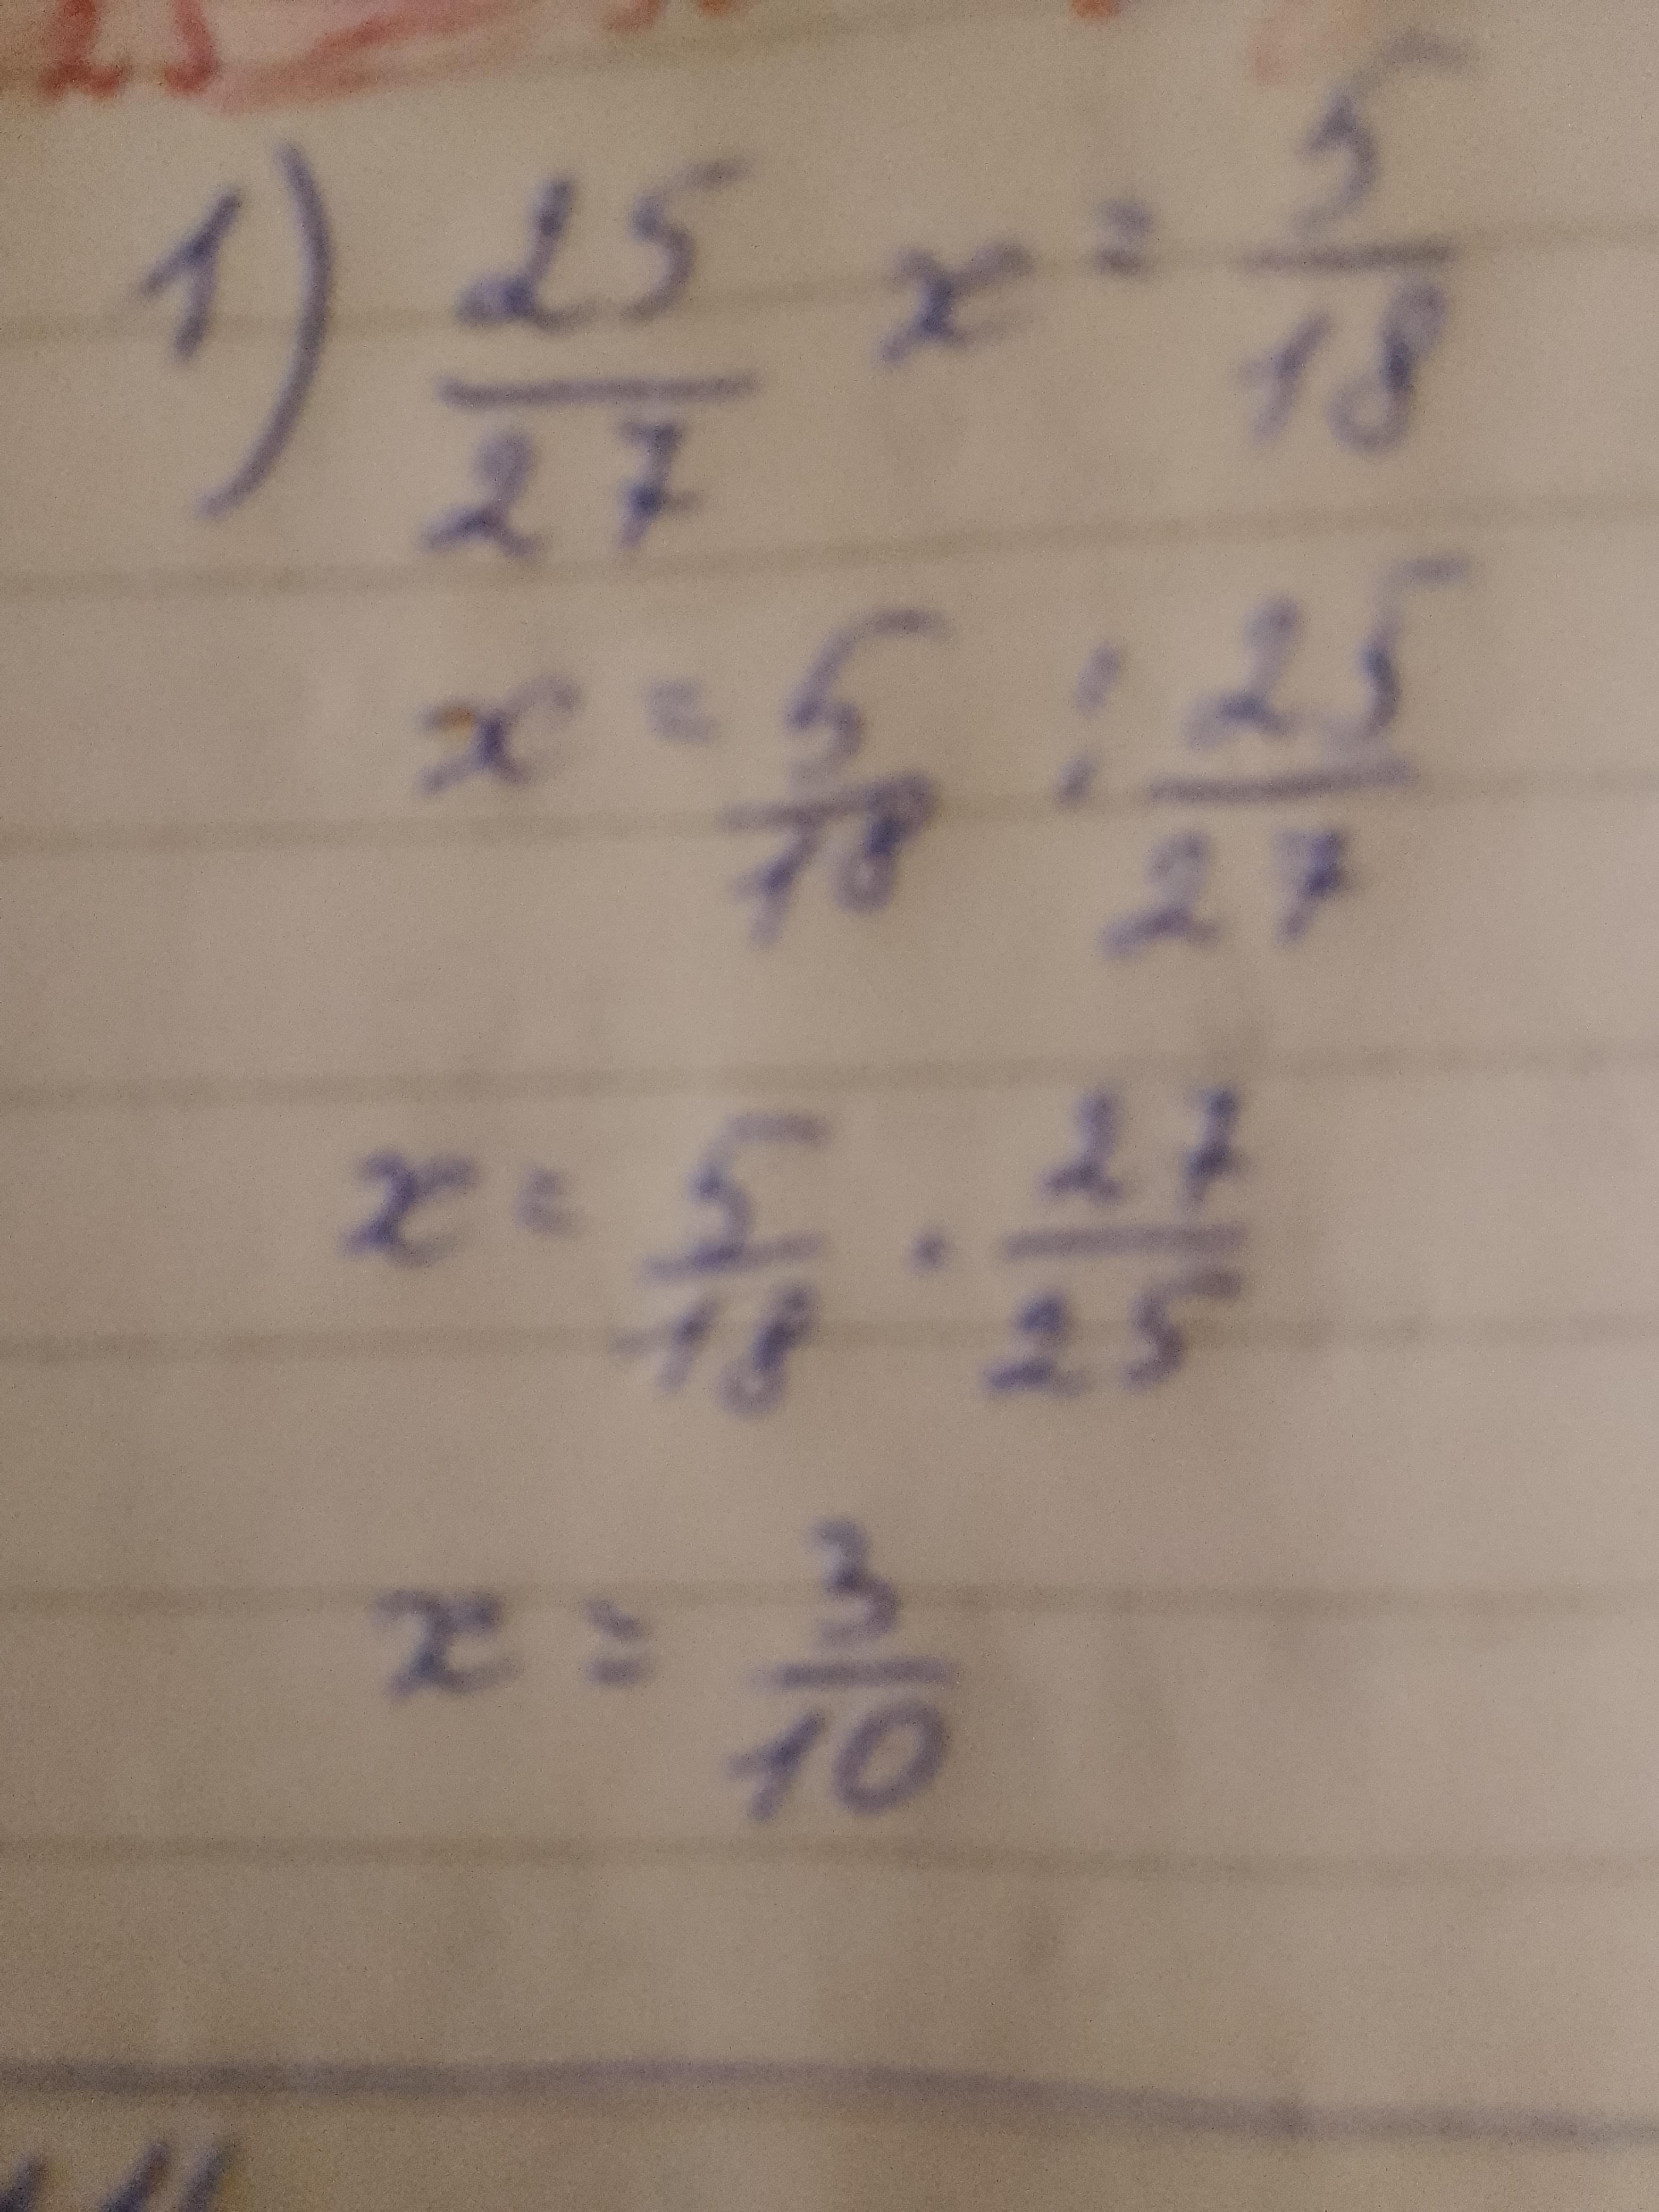 25
1) 25/27 x = 5/18
x = 5/18 : 25/27
x = 5/18 · 27/25
x = 3/10